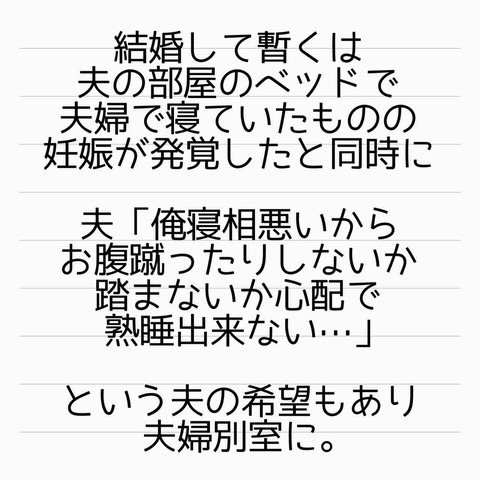 結婚して暫くは
夫の部屋のベッドで
夫婦で寝ていたものの
妊娠が発覚したと同時に
夫「俺寝相悪いから
お腹蹴ったりしないか
踏まないか心配で
熟睡出来ない…」
という夫の希望もあり
夫婦別室に。